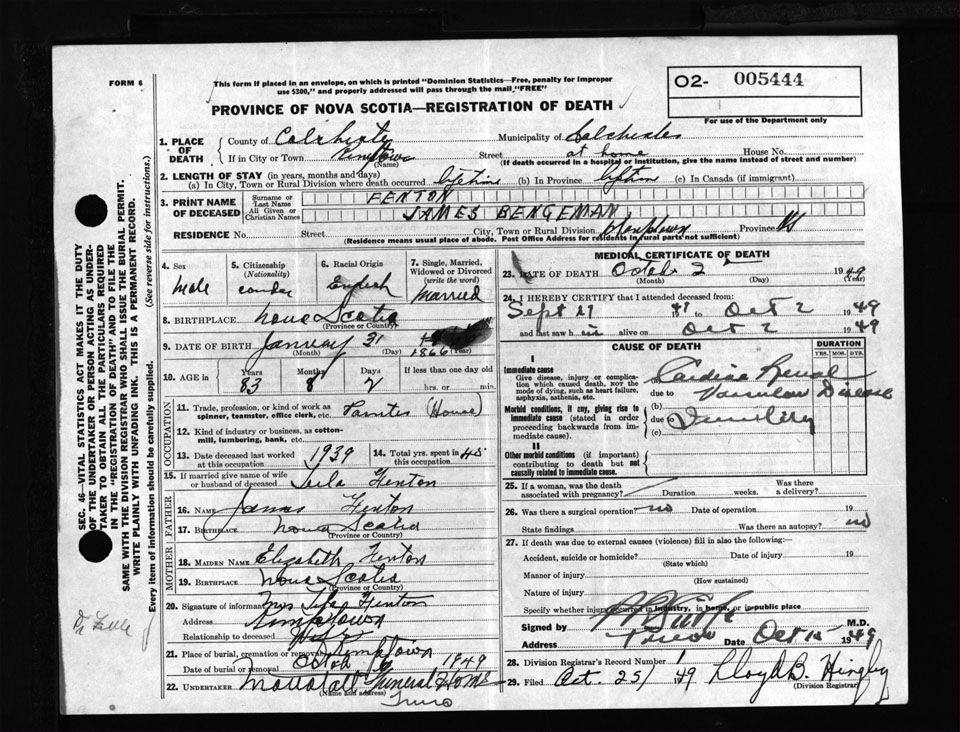 FORM 6
This form if placed in an envelope, on which is printed "Dominion Statistics—Free, penalty for improper
use $300," and properly addressed will pass through the mail "FREE"
O2- 005444
For use of the Department only
PROVINCE OF NOVA SCOTIA—REGISTRATION OF DEATH
1. PLACE OF DEATH County of Colchester Municipality of Colchester
If in City or Town Street at home House No.
(Name) (If death occurred in a hospital or institution, give the name instead of street and number)
2. LENGTH OF STAY (in years, months and days)
(a) In City, Town or Rural Division where death occurred lifetime (b) In Province lifetime (c) In Canada (if immigrant)
3. PRINT NAME OF DECEASED Surname or Last Name FENTON
All Given or Christian Names JAMES BENGEMAN
RESIDENCE No. Street City, Town or Rural Division Province NS
(Residence means usual place of abode. Post Office Address for residents in rural parts not sufficient)
4. Sex Male
5. Citizenship (Nationality)
6. Racial Origin English
7. Single, Married, Widowed or Divorced (write the word) Married
8. BIRTHPLACE Nova Scotia
(Province or Country)
9. DATE OF BIRTH January 31 1866
(Month) (Day) (Year)
10. AGE in Years 83 Months 8 Days 2 If less than one day old
hrs. or min.
OCCUPATION
11. Trade, profession, or kind of work as spinner, teamster, office clerk, etc. (House)
12. Kind of industry or business, as cotton-mill, lumbering, bank, etc.
13. Date deceased last worked at this occupation 1939
14. Total yrs. spent in this occupation 45
15. If married give name of wife or husband of deceased Fenton
FATHER
16. Name James Fenton
17. Birthplace Nova Scotia
(Province or Country)
MOTHER
18. Maiden Name Elizabeth Fenton
19. Birthplace Nova Scotia
(Province or Country)
20. Signature of informant Mrs Fenton
Address Kemptown
Relationship to deceased Wife
21. Place of burial, cremation or removal Kemptown
Date of burial or removal 1949
22. UNDERTAKER Funeral Home
(Name and address)
Truro
MEDICAL CERTIFICATE OF DEATH
23. DATE OF DEATH October 2 1949
(Month) (Day) (Year)
24. I HEREBY CERTIFY that I attended deceased from:
Sept to Oct 2 1949
and last saw h alive on Oct 2 1949
CAUSE OF DEATH
DURATION
YRS. MOS. DYS.
I
Immediate cause
Give disease, injury or complication which caused death, NOT the mode of dying, such as heart failure, asphyxia, asthenia, etc.
(a) Cardio Renal
due to Vascular Disease
Morbid conditions, if any, giving rise to immediate cause (stated in order proceeding backwards from immediate cause).
(b)
due to
(c)
II
Other morbid conditions (if important) contributing to death but not causally related to immediate cause.
25. If a woman, was the death associated with pregnancy? Duration weeks. Was there a delivery?
26. Was there a surgical operation? no Date of operation 19
State findings Was there an autopsy? no
27. If death was due to external causes (violence) fill in also the following:
Accident, suicide or homicide? Date of injury 19
(State which)
Manner of injury
(How sustained)
Nature of injury
Specify whether injury occurred in industry, in home, or in public place
Signed by M.D.
Address Truro Date Oct 15 1949
28. Division Registrar's Record Number 1
29. Filed Oct. 25/ 1949 Lloyd B.
(Division Registrar)
SEC. 46—VITAL STATISTICS ACT MAKES IT THE DUTY
OF THE UNDERTAKER OR PERSON ACTING AS UNDER-
TAKER TO OBTAIN ALL THE PARTICULARS REQUIRED
IN THE "REGISTRATION OF DEATH" AND TO FILE THE
SAME WITH THE DIVISION REGISTRAR WHO SHALL ISSUE THE BURIAL PERMIT.
WRITE PLAINLY WITH UNFADING INK. THIS IS A PERMANENT RECORD.
Every item of information should be carefully supplied. (See reverse side for instructions.)